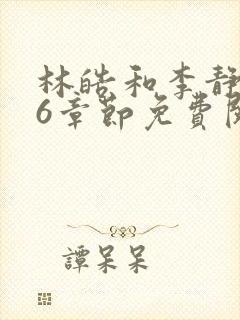 林皓和李靜
6章節免費閱
譚呆呆